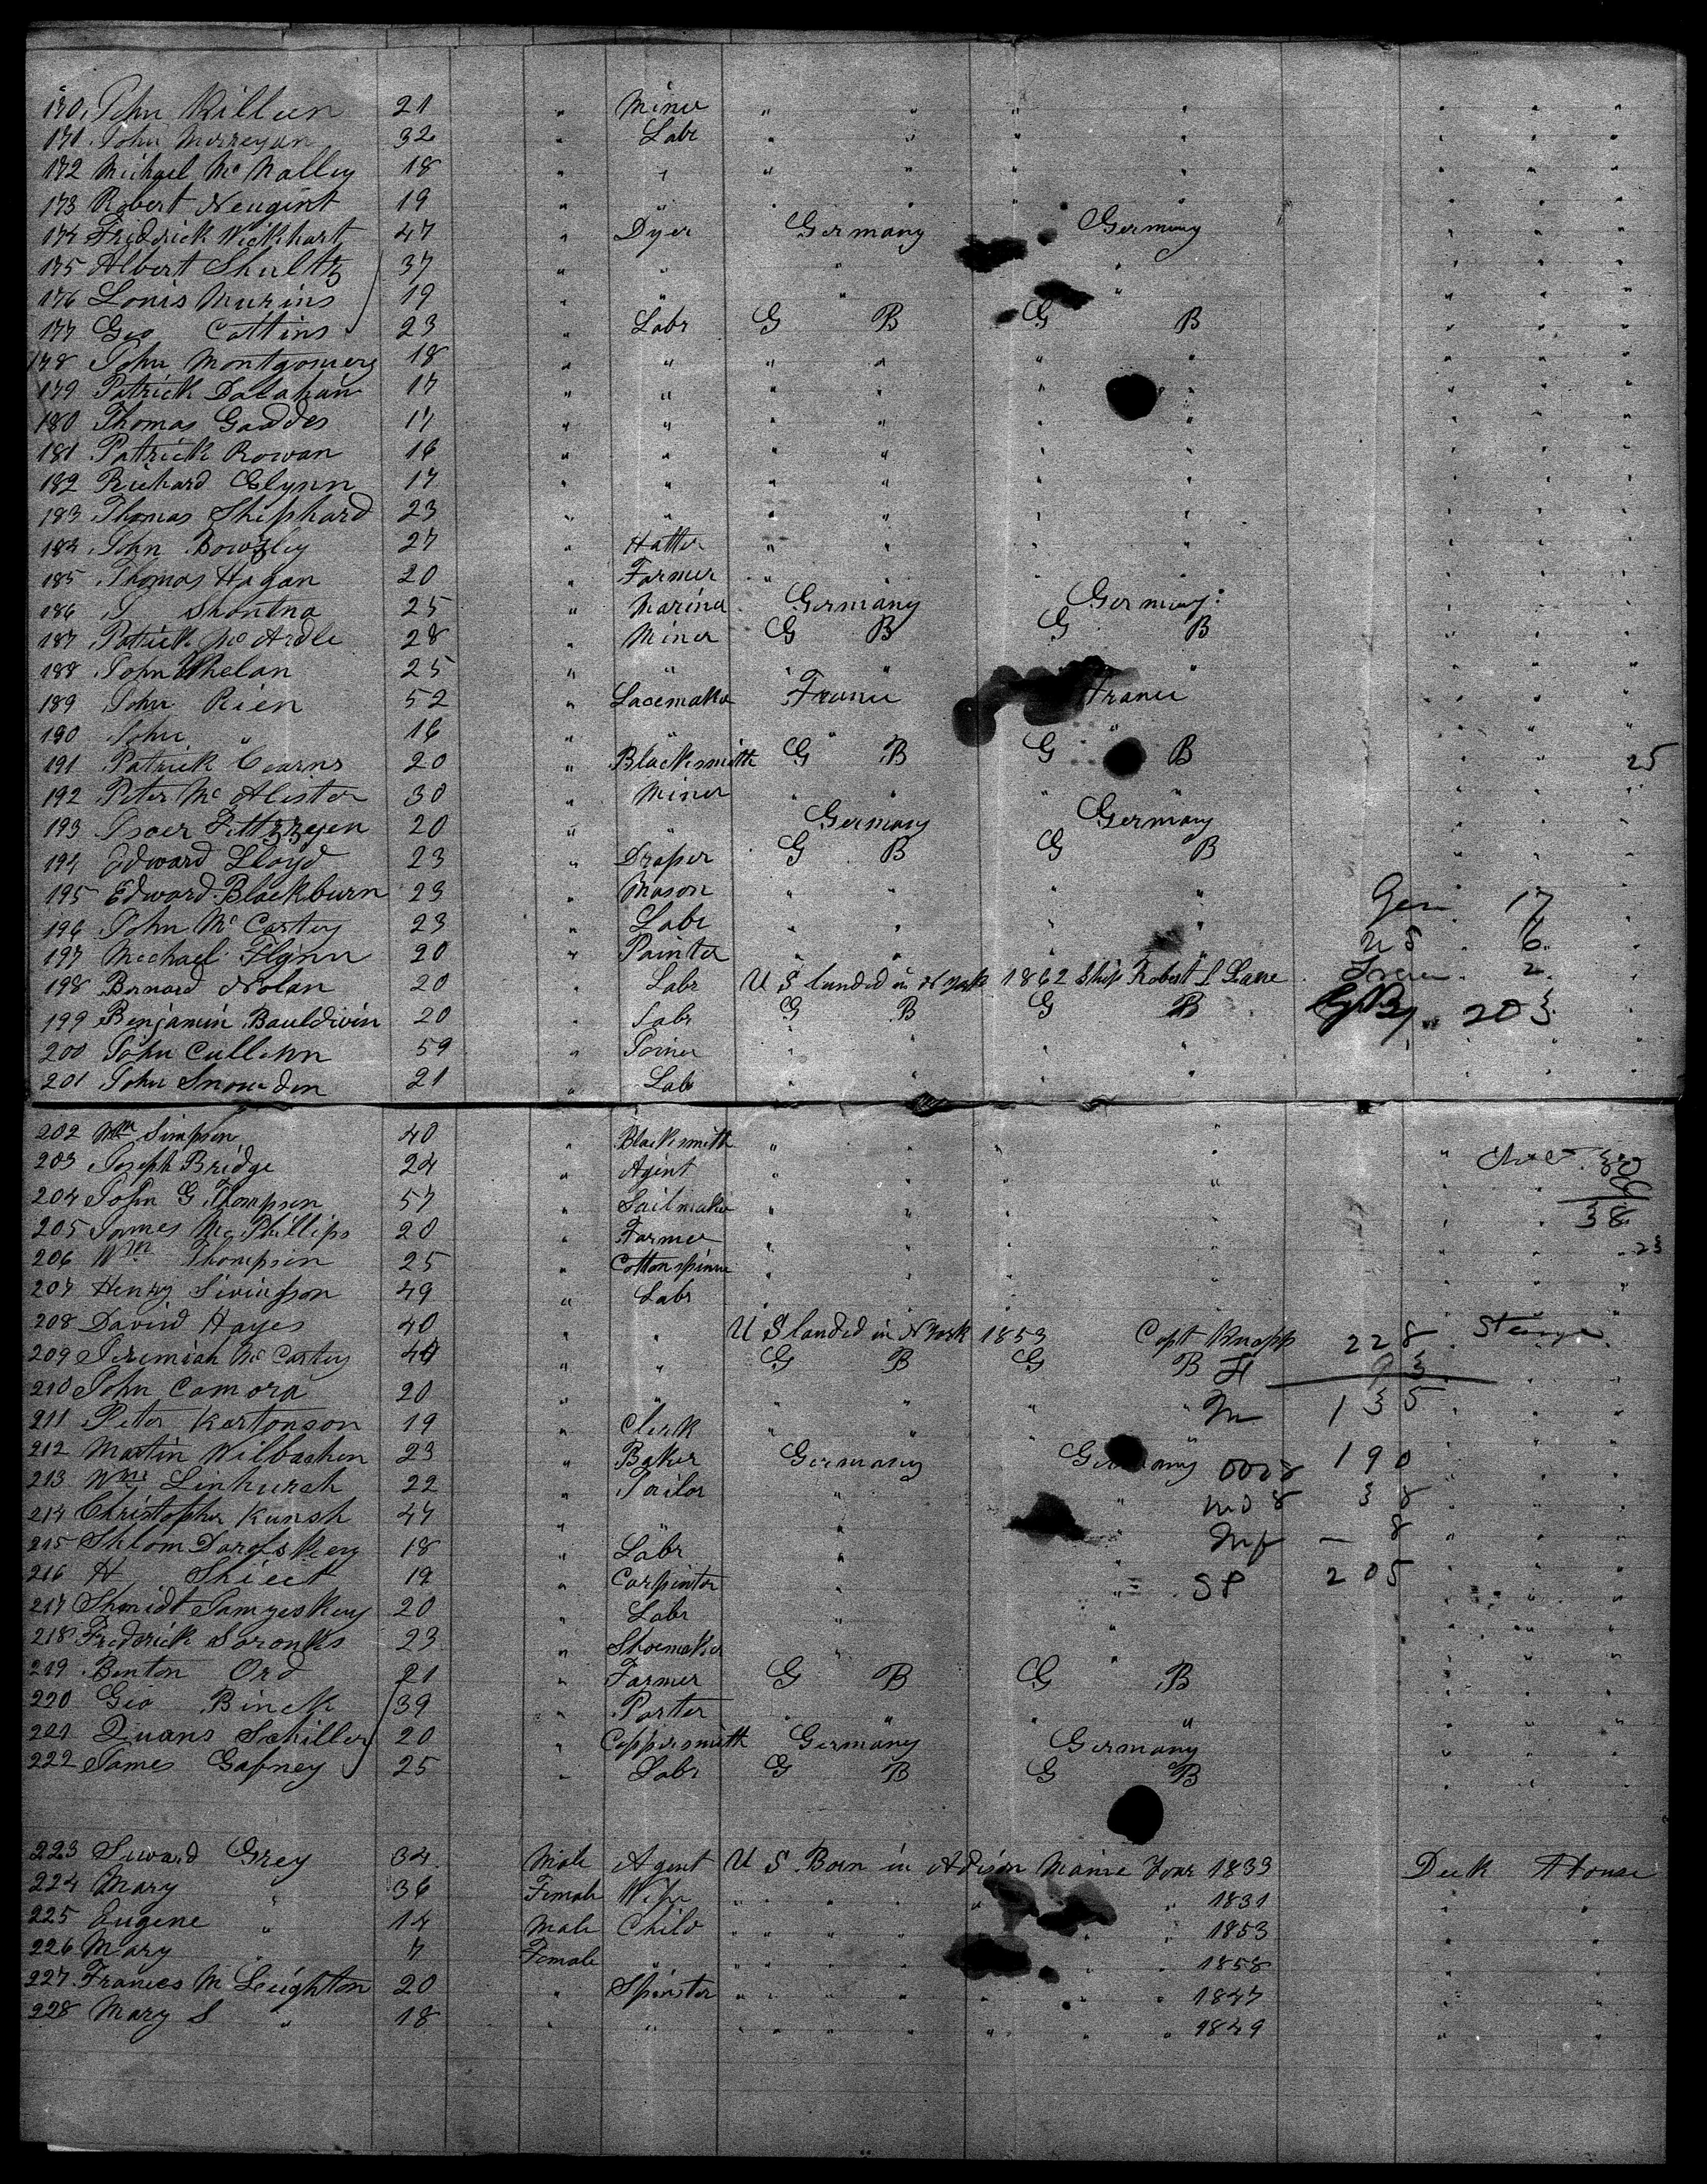 170 John Killeen 21 " Miner " " " " " " "
171 John Merreyan 32 " Labr " " " " " " "
172 Michael Mc Nalley 18 " " " " " " " " "
173 Robert Neugint 19 " " " " " " " " "
174 Frederick Wickhart 47 " Dyer Germany Germany " " "
175 Albert Shultz 37 " " " " " " "
176 Louis Murins 19 " " " " " " "
177 Geo Cottins 23 " Labr G B G B " " "
178 John Montgomery 18 " " " " " " " " "
179 Patrick Dalahan 17 " " " " " " " " "
180 Thomas Gaddes 17 " " " " " " " " "
181 Patrick Rowan 16 " " " " " " " " "
182 Richard Glynn 17 " " " " " " " " "
183 Thomas Shephard 23 " " " " " " " " "
184 John Bowzley 27 " Hatter " " " " " " "
185 Thomas Hagan 20 " Farmer " " " " " " "
186 J Shontna 25 " Marina Germany Germany " " "
187 Patrick Mc Ardle 28 " Miner G B G B " " "
188 John Whelan 25 " " " " " " " " "
189 John Rien 52 " Lacemaker France France " " "
190 John " 16 " " " " " " "
191 Patrick Cearns 20 " Blacksmith G B G B " " 25
192 Peter Mc Alister 30 " Miner " " " " " " "
193 Isaer Fittzzegen 20 " " Germany Germany " " "
194 Edward Lloyd 23 " Draper G B G B " " "
195 Edward Blackburn 23 " Mason " " " " Ger 17
196 John Mc Cartey 23 " Labr " " " " U S 6
197 Michael Flynn 20 " Painter " " " " 2
198 Bernard Nolan 20 " Labr U S landed in N York 1862 Ship Robert L Lane
199 Benjamin Bauldwin 20 " Labr G B G B G B 203
200 John Cullinn 59 " Joiner " " " " " " "
201 John Snowden 21 " Labr " " " " " " "
202 Wm Simpson 40 " Blacksmith " " " " "
203 Joseph Bridge 24 " Agent " " " " 30
204 John G Thompson 57 " Sailmaker " " " " " "
205 James Mc Phillips 20 " Farmer " " " " " " 38
206 Wm Thompson 25 " Cotton spinner " " " " " " 23
207 Henry Sivinsson 49 " Labr " " " " " " "
208 David Hayes 40 " " U S landed in N York 1853 Capt Knapp 228
209 Jeremiah Mc Cartey 40 " " G B G B F 93
210 John Camora 20 " " " " " " M 135
211 Peter Kertonson 19 " Clerk " " " " " "
212 Martin Wilbachen 23 " Baker Germany Germany 190
213 Wm Linhurah 22 " Tailor " " 38
214 Christopher Kunsh 47 " " " " — 8
215 Shlom Darofskey 18 " Labr " " " "
216 H Shieet 19 " Carpinter " " SP 205
217 Shmidt Jamyeskey 20 " Labr " " " " "
218 Frederick Soronks 23 " Shoemaker " " " " "
219 Benton Ord 21 " Farmer G B G B " " "
220 Geo Binck 39 " Porter " " " " " " "
221 Quans Schiller 20 " Coppersmith Germany Germany " " "
222 James Gafney 25 " Labr G B G B " " "
223 Seward Grey 34 Male Agent U S Born in Adison Maine Year 1833 Deck House
224 Mary " 36 Female Wife " " " " " " 1831 " "
225 Eugene " 14 Male Child " " " " " " 1853 " "
226 Mary " 7 Female " " " " " " " 1858 " "
227 Frances M Leighton 20 " Spinster " " " " " " 1847 " "
228 Mary S " 18 " " " " " " " " 1849 " "